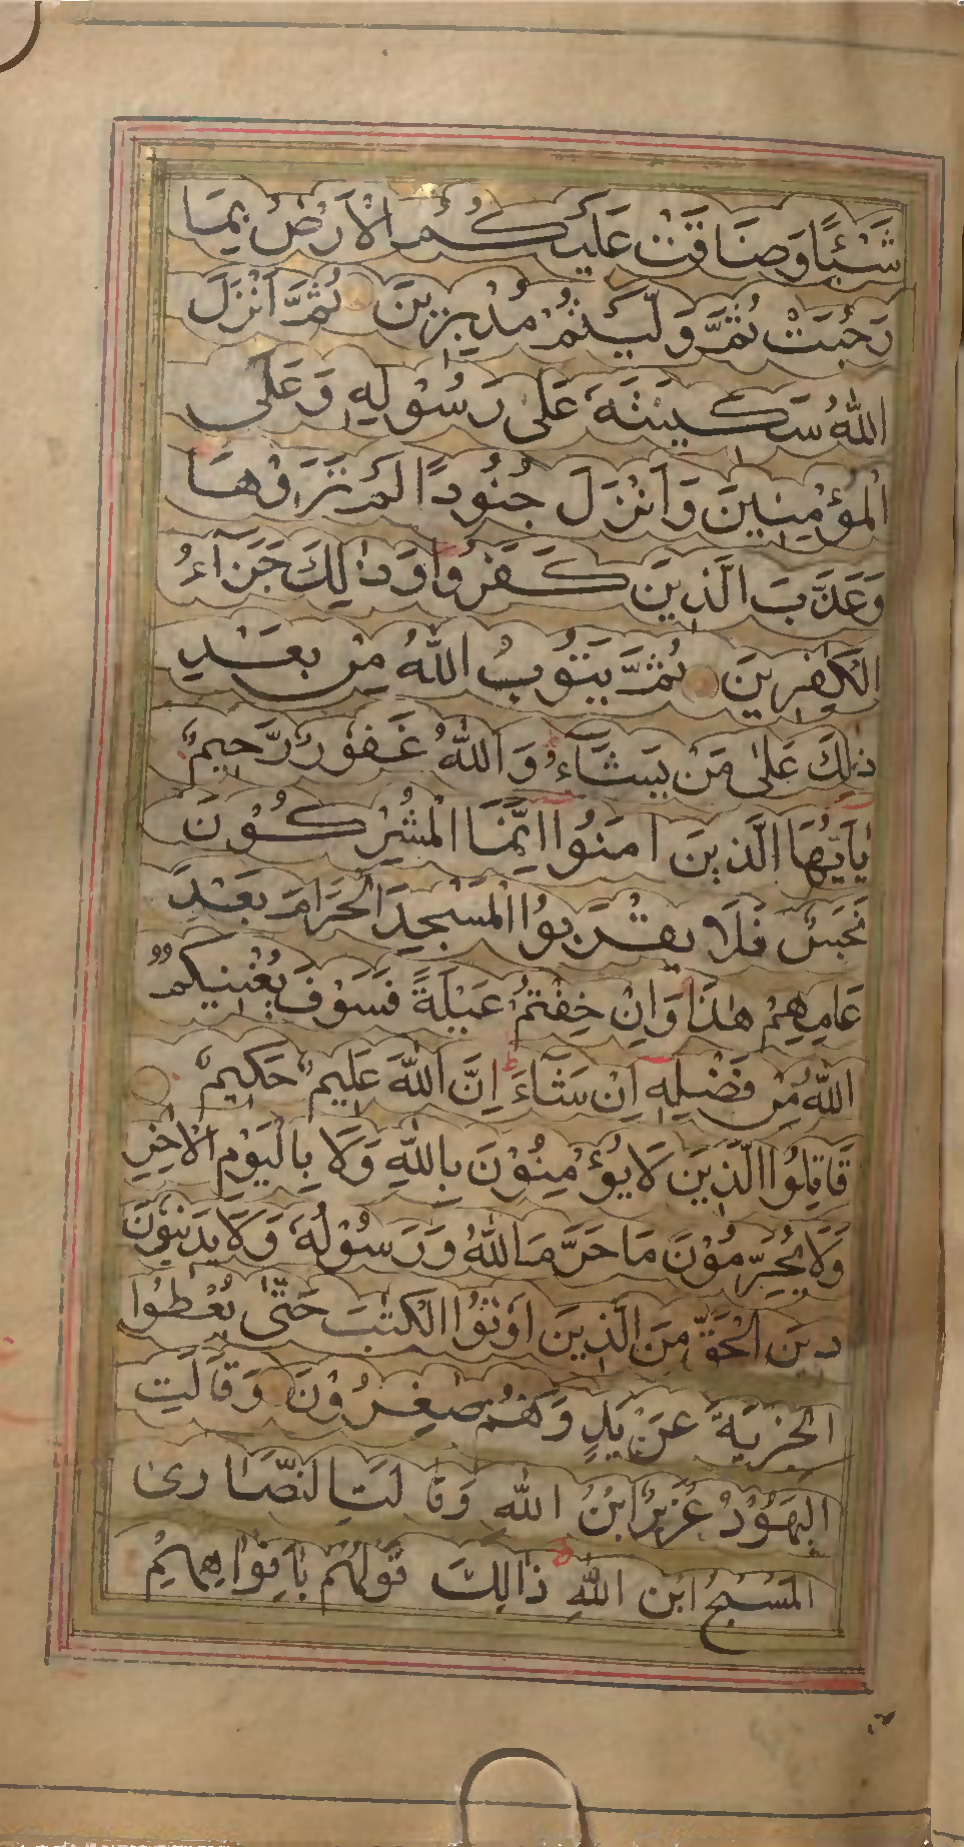 شَيْئًا وَضَاقَتْ عَلَيْكُمُ الْاَرْضُ بِمَا
رَحُبَتْ ثُمَّ وَلَّيْتُمْ مُدْبِرِيْنَ ثُمَّ اَنْزَلَ
اللّٰهُ سَكِيْنَتَهٗ عَلٰى رَسُوْلِهٖ وَعَلَى
الْمُؤْمِنِيْنَ وَاَنْزَلَ جُنُوْدًا لَمْ تَرَوْهَا
وَعَذَّبَ الَّذِيْنَ كَفَرُوْا وَذٰلِكَ جَزَآءُ
الْكٰفِرِيْنَ ثُمَّ يَتُوْبُ اللّٰهُ مِنْ بَعْدِ
ذٰلِكَ عَلٰى مَنْ يَشَآءُ وَاللّٰهُ غَفُوْرٌ رَّحِيْمٌ
يٰٓاَيُّهَا الَّذِيْنَ اٰمَنُوْا اِنَّمَا الْمُشْرِكُوْنَ
نَجَسٌ فَلَا يَقْرَبُوا الْمَسْجِدَ الْحَرَامَ بَعْدَ
عَامِهِمْ هٰذَا وَاِنْ خِفْتُمْ عَيْلَةً فَسَوْفَ يُغْنِيْكُمُ
اللّٰهُ مِنْ فَضْلِهٖ اِنْ شَآءَ اِنَّ اللّٰهَ عَلِيْمٌ حَكِيْمٌ
قَاتِلُوا الَّذِيْنَ لَا يُؤْمِنُوْنَ بِاللّٰهِ وَلَا بِالْيَوْمِ الْاٰخِرِ
وَلَا يُحَرِّمُوْنَ مَا حَرَّمَ اللّٰهُ وَرَسُوْلُهٗ وَلَا يَدِيْنُوْنَ
دِيْنَ الْحَقِّ مِنَ الَّذِيْنَ اُوْتُوا الْكِتٰبَ حَتّٰى يُعْطُوا
الْجِزْيَةَ عَنْ يَدٍ وَهُمْ صٰغِرُوْنَ وَقَالَتِ
الْيَهُوْدُ عُزَيْرٌ ابْنُ اللّٰهِ وَقَالَتِ النَّصَارٰى
الْمَسِيْحُ ابْنُ اللّٰهِ ذَالِكَ قَوْلُهُمْ بِاَفْوَاهِهِمْ